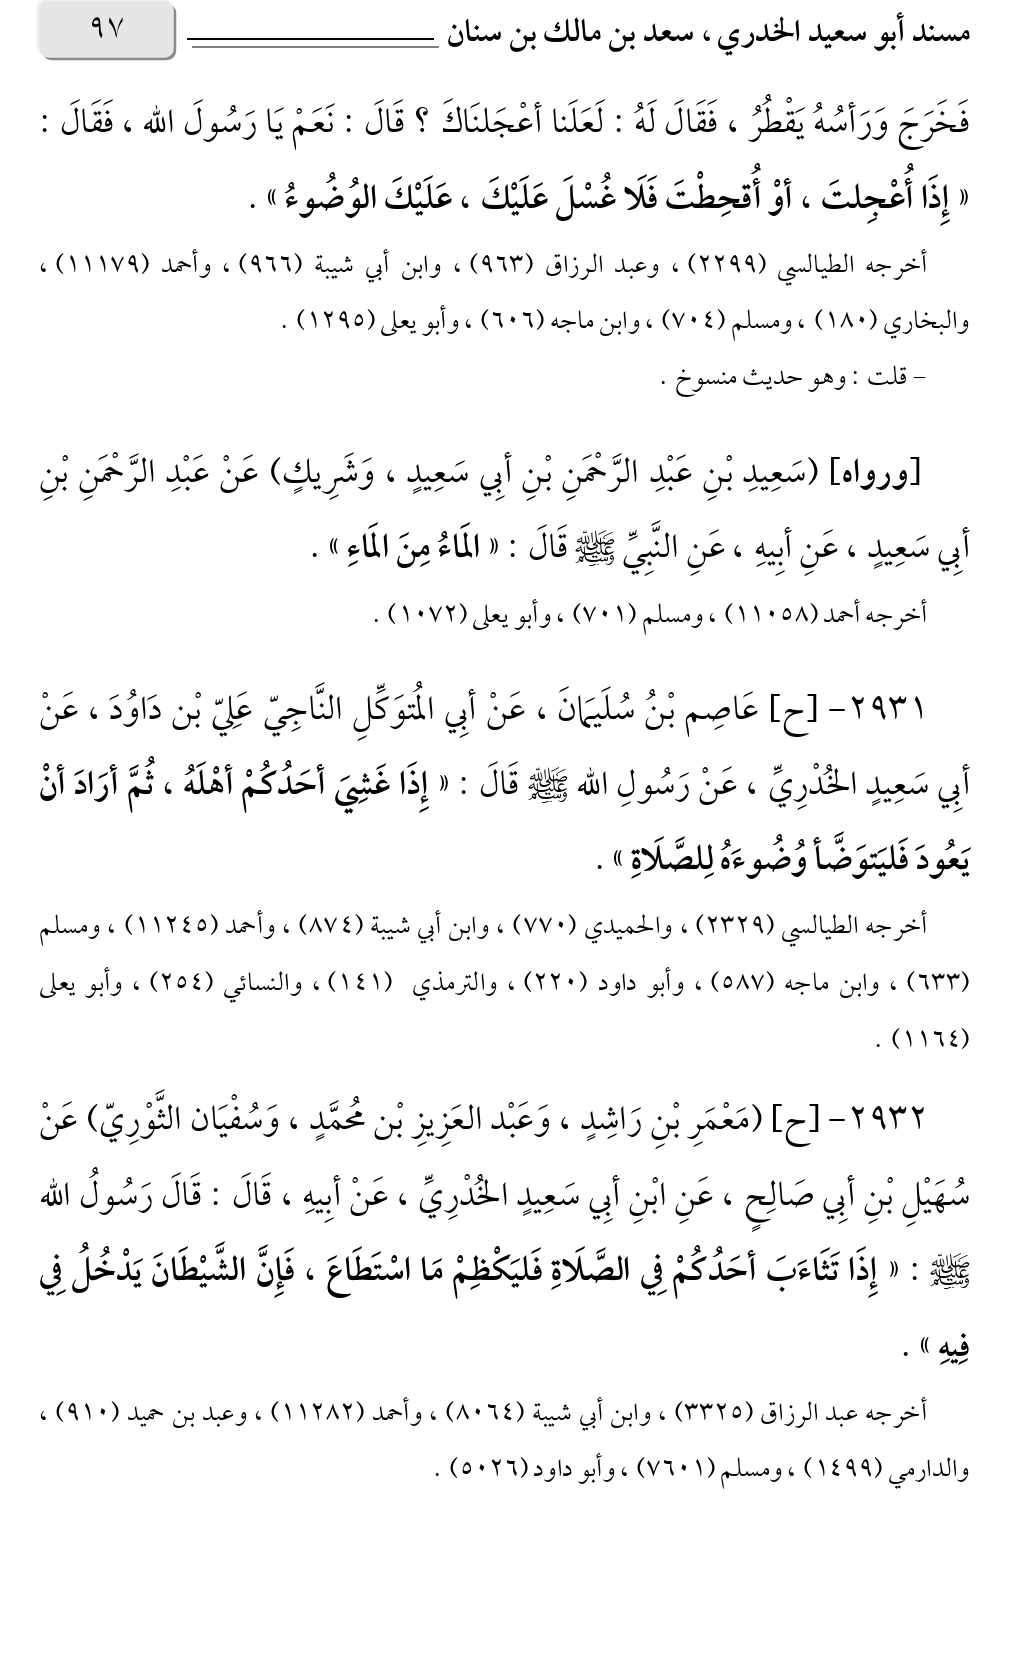 مسند أبو سعيد الخدري ، سعد بن مالك بن سنان ٩٧
فَخَرَجَ وَرَأسُهُ يَقْطُرُ ، فَقَالَ لَهُ : لَعَلَنا أعْجَلنَاكَ ؟ قَالَ : نَعَمْ يَا رَسُولَ الله ، فَقَالَ :
« إِذَا أُعْجِلتَ ، أوْ أُقحِطْتَ فَلَا غُسْلَ عَلَيْكَ ، عَلَيْكَ الوُضُوءُ » .
أخرجه الطيالسي (٢٢٩٩) ، وعبد الرزاق (٩٦٣) ، وابن أبي شيبة (٩٦٦) ، وأحمد (١١١٧٩) ،
والبخاري (١٨٠) ، ومسلم (٧٠٤) ، وابن ماجه (٦٠٦) ، وأبو يعلى (١٢٩٥) .
– قلت : وهو حديث منسوخ .
[ورواه] (سَعِيدِ بْنِ عَبْدِ الرَّحْمَنِ بْنِ أبِي سَعِيدٍ ، وَشَرِيكٍ) عَنْ عَبْدِ الرَّحْمَنِ بْنِ
أبِي سَعِيدٍ ، عَنِ أبِيهِ ، عَنِ النَّبِيِّ ﷺ قَالَ : « المَاءُ مِنَ المَاءِ » .
أخرجه أحمد (١١٠٥٨) ، ومسلم (٧٠١) ، وأبو يعلى (١٠٧٢) .
٢٩٣١– [ح] عَاصِم بْنُ سُلَيمَانَ ، عَنْ أبِي المُتوَكِّلِ النَّاجِيّ عَلِيّ بْن دَاوُدَ ، عَنْ
أبِي سَعِيدٍ الخُدْرِيِّ ، عَنْ رَسُولِ الله ﷺ قَالَ : « إِذَا غَشِيَ أحَدُكُمْ أهْلَهُ ، ثُمَّ أرَادَ أنْ
يَعُودَ فَليَتوَضَّأ وُضُوءَهُ لِلصَّلَاةِ » .
أخرجه الطيالسي (٢٣٢٩) ، والحميدي (٧٧٠) ، وابن أبي شيبة (٨٧٤) ، وأحمد (١١٢٤٥) ، ومسلم
(٦٣٣) ، وابن ماجه (٥٨٧) ، وأبو داود (٢٢٠) ، والترمذي (١٤١) ، والنسائي (٢٥٤) ، وأبو يعلى
(١١٦٤) .
٢٩٣٢– [ح] (مَعْمَرِ بْنِ رَاشِدٍ ، وَعَبْد العَزِيزِ بْن مُحمَّدٍ ، وَسُفْيَان الثَّوْرِيّ) عَنْ
سُهَيْلِ بْنِ أبِي صَالِحٍ ، عَنِ ابْنِ أبِي سَعِيدٍ الخُدْرِيِّ ، عَنْ أبِيهِ ، قَالَ : قَالَ رَسُولُ الله
ﷺ : « إِذَا تَثَاءَبَ أحَدُكُمْ فِي الصَّلَاةِ فَليَكْظِمْ مَا اسْتَطَاعَ ، فَإِنَّ الشَّيْطَانَ يَدْخُلُ فِي
فِيهِ » .
أخرجه عبد الرزاق (٣٣٢٥) ، وابن أبي شيبة (٨٠٦٤) ، وأحمد (١١٢٨٢) ، وعبد بن حميد (٩١٠) ،
والدارمي (١٤٩٩) ، ومسلم (٧٦٠١) ، وأبو داود (٥٠٢٦) .